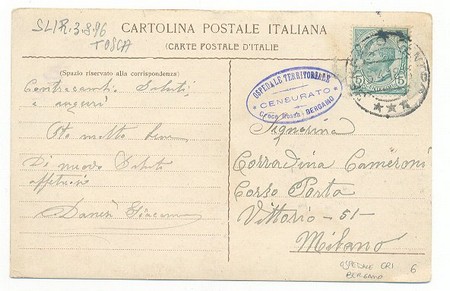 SLIR-3-8-96
TOSCA
CARTOLINA POSTALE ITALIANA
(CARTE POSTALE D'ITALIE)
(Spazio riservato alla corrispondenza)
saluti
e auguri
Sto molto bene
Di nuovo Saluti
Danesi Giacomo
OSPEDALE TERRITORIALE
CENSURATO
Croce Rossa - BERGAMO
5 5
Signorina
Corradina Cameroni
Corso Porta
Vittorio - 51 -
Milano
OSPEDALE CRI
BERGAMO
6